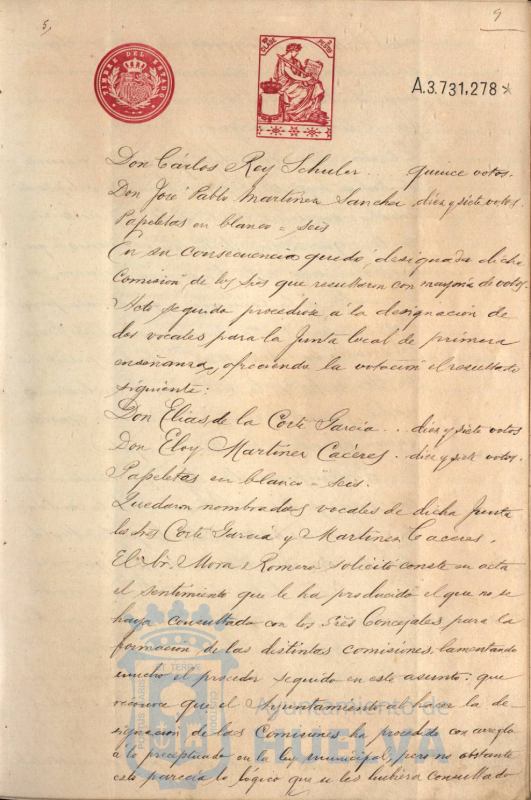 5,
9
TIMBRE DEL ESTADO
CLASE PESETAS
A.3.731,278
Don Cárlos Rey Schuler .. quince votos.
Don José Pablo Martinez Sanchez diez y siete votos.
Papeletas en blanco = seis
En su consecuencia quedó designada dicha
Comision de los Sres que resultaron con mayoria de votos.
Acto seguido procediose á la designación de
dos vocales para la Junta local de primera
enseñanza, ofreciendo la votacion el resultado
siguiente:
Don Elias de la Corte Garcia .. diez y siete votos
Don Eloy Martinez Cáceres. diez y siete votos.
Papeletas en blanco = seis.
Quedaron nombrados vocales de dicha Junta
los Sres Corte Garcia y Martinez Caceres.
El Sr. Mora y Romero solicitó conste en acta
el sentimiento que le ha producido el que no se
haya consultado con los Sres Concejales para la
formacion de las distintas comisiones, lamentando
mucho el proceder seguido en este asunto: que
reconoce que el Ayuntamiento al hacer la de-
signacion de las Comisiones ha procedido con arreglo
á lo preceptuado en la ley municipal, pero no obstante
esto parecia lo lógico que se les hubiera consultado
Ayuntamiento de
HUELVA